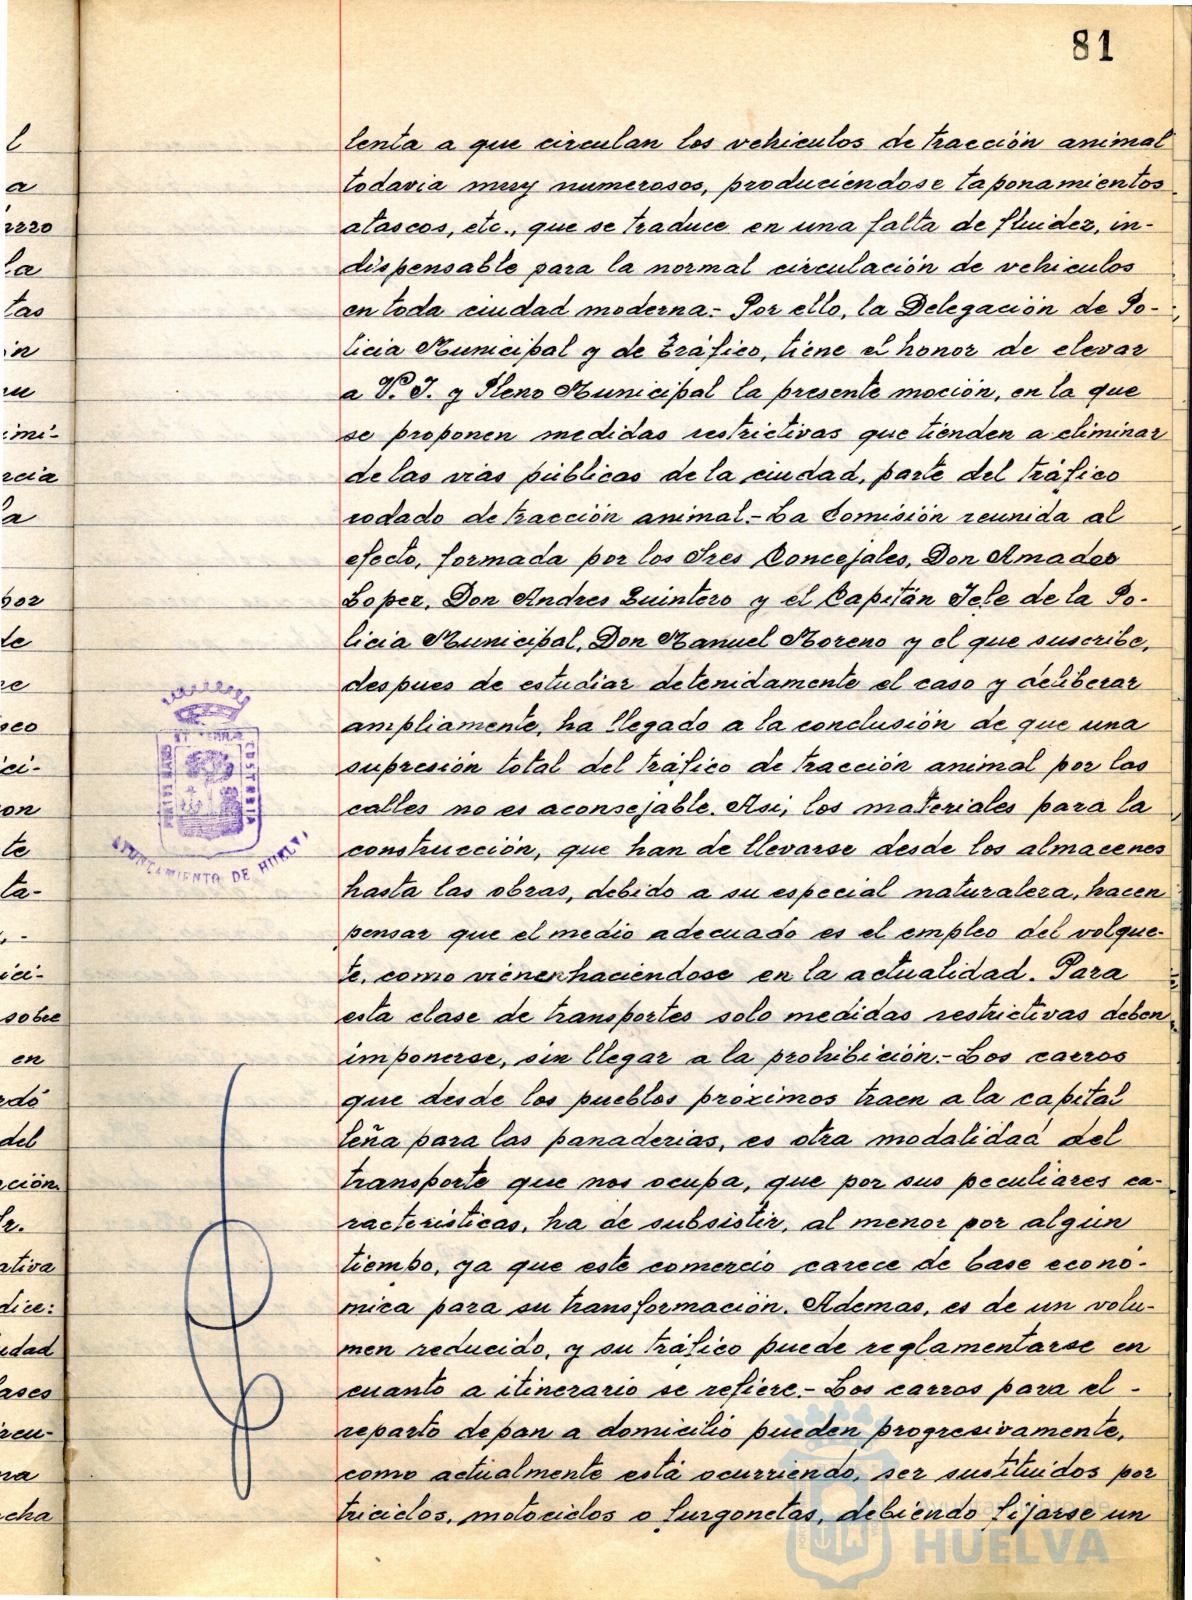 81
lenta a que circulan los vehiculos de tracción animal
todavia muy numerosos, produciendose taponamientos
atascos, etc., que se traduce en una falta de fluidez, in-
dispensable para la normal circulación de vehiculos
en toda ciudad moderna.- Por ello, la Delegación de Po-
licia Municipal y de Tráfico, tiene el honor de elevar
a V. I. y Pleno Municipal la presente moción, en la que
se proponen medidas restrictivas que tienden a eliminar
de las vias públicas de la ciudad, parte del tráfico
rodado de tracción animal.- La Comisión reunida al
efecto, formada por los Sres Concejales, Don Amadeo
Lopez, Don Andres Quintero y el Capitán Jefe de la Po-
licia Municipal, Don Manuel Moreno y el que suscribe,
despues de estudiar detenidamente el caso y deliberar
ampliamente, ha llegado a la conclusión de que una
supresión total del tráfico de tracción animal por las
calles no es aconsejable. Asi, los materiales para la
construcción, que han de llevarse desde los almacenes
hasta las obras, debido a su especial naturaleza, hacen
pensar que el medio adecuado es el empleo del volque-
te, como vienen haciendose en la actualidad. Para
esta clase de transportes solo medidas restrictivas deben
imponerse, sin llegar a la prohibición.- Los carros
que desde los pueblos próximos traen a la capital
leña para las panaderias, es otra modalidad del
transporte que nos ocupa, que por sus peculiares ca-
racteristicas, ha de subsistir, al menor por algún
tiempo, ya que este comercio carece de base econó-
mica para su transformación. Ademas, es de un volu-
men reducido, y su tráfico puede reglamentarse en
cuanto a itinerario se refiere.- Los carros para el -
reparto de pan a domicilio pueden progresivamente,
como actualmente está ocurriendo, ser sustituidos por
triciclos, motociclos o furgonetas, debiendo fijarse un
AYUNTAMIENTO DE HUELVA
Ayuntamiento de
HUELVA